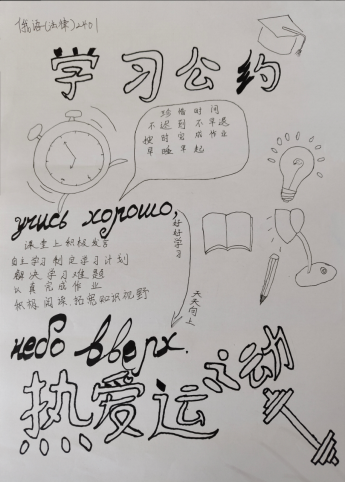 俄语(法律)2401
学习公约
珍惜时间
不迟到不早退
按时完成作业
早睡早起
учись хорошо,
好好学习
课堂上积极发言
自主学习制定学习计划
解决学习难题
认真完成作业
积极阅读,拓宽知识视野
天天向上
небо вверх.
热爱运动